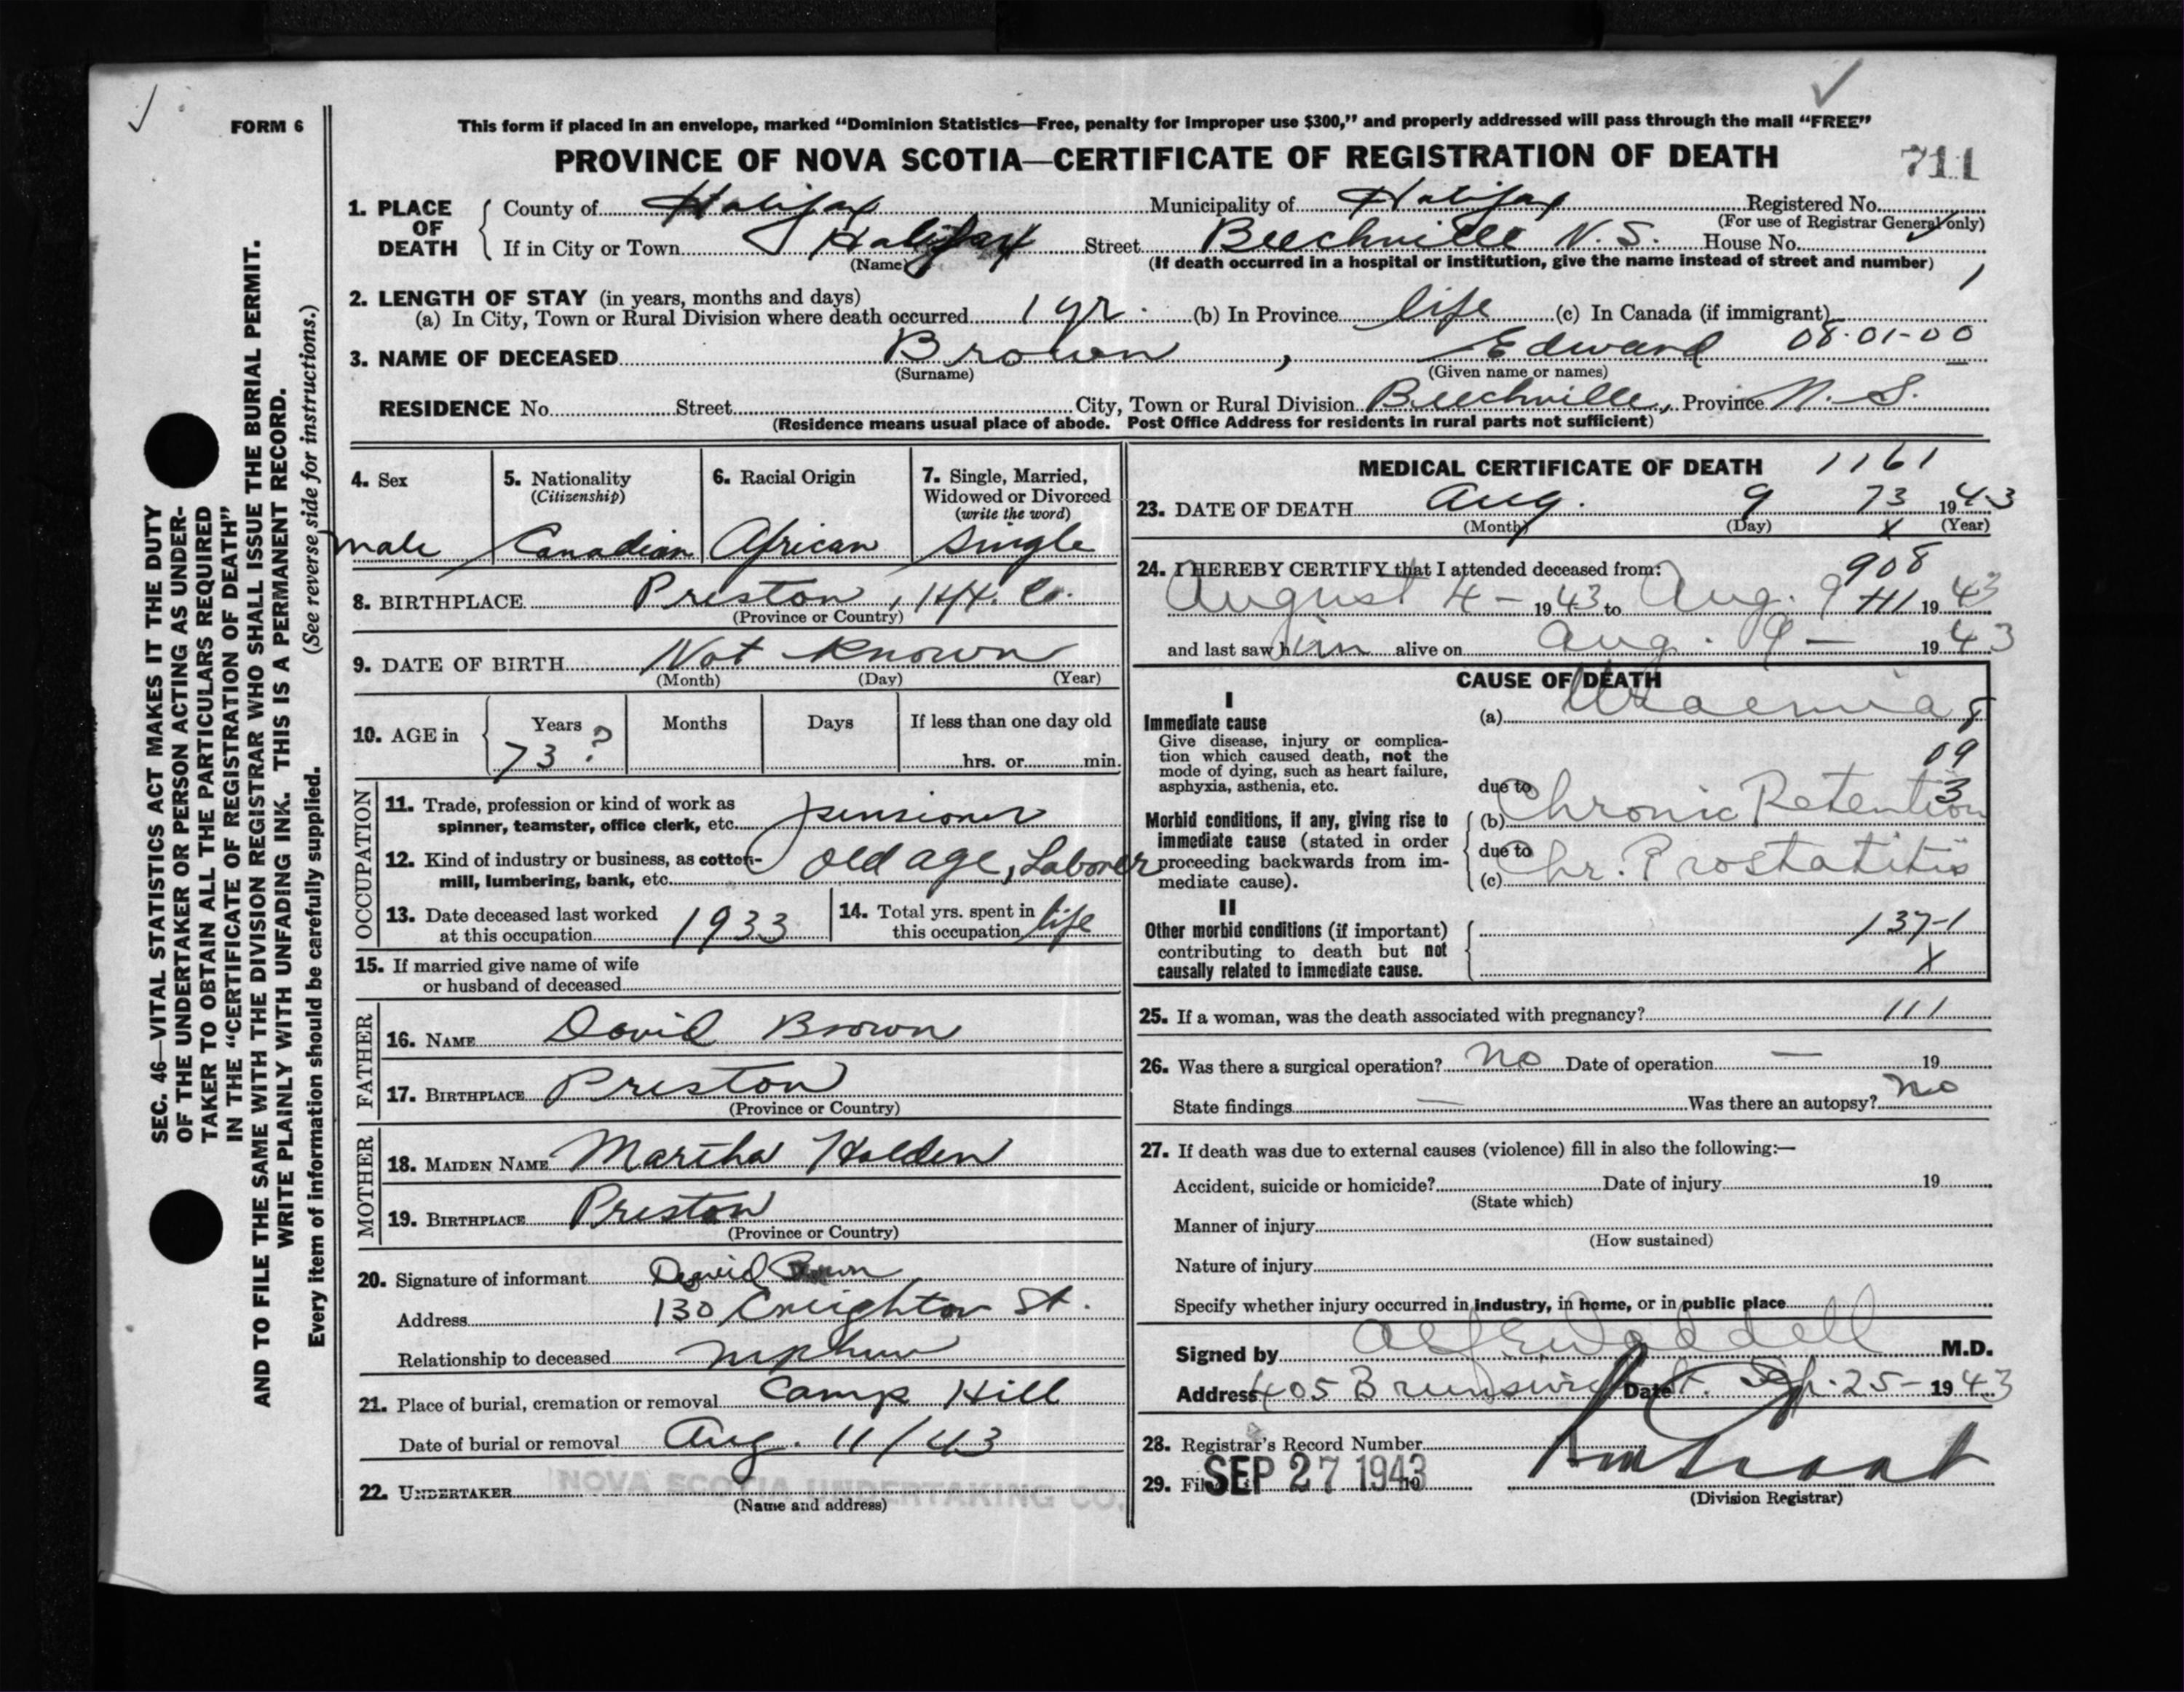 FORM 6
This form if placed in an envelope, marked “Dominion Statistics—Free, penalty for improper use $300,” and properly addressed will pass through the mail “FREE”
PROVINCE OF NOVA SCOTIA—CERTIFICATE OF REGISTRATION OF DEATH
711
SEC. 46—VITAL STATISTICS ACT MAKES IT THE DUTY
OF THE UNDERTAKER OR PERSON ACTING AS UNDER-
TAKER TO OBTAIN ALL THE PARTICULARS REQUIRED
IN THE “CERTIFICATE OF REGISTRATION OF DEATH”
AND TO FILE THE SAME WITH THE DIVISION REGISTRAR WHO SHALL ISSUE THE BURIAL PERMIT.
WRITE PLAINLY WITH UNFADING INK. THIS IS A PERMANENT RECORD.
Every item of information should be carefully supplied. (See reverse side for instructions.)
1. PLACE OF DEATH
County of Halifax Municipality of Halifax Registered No.
(For use of Registrar General only)
If in City or Town Halifax Street Beechville N.S. House No.
(Name) (If death occurred in a hospital or institution, give the name instead of street and number)
2. LENGTH OF STAY (in years, months and days)
(a) In City, Town or Rural Division where death occurred 1 yr. (b) In Province life (c) In Canada (if immigrant)
3. NAME OF DECEASED Brown, Edward 08-01-00
(Surname) (Given name or names)
RESIDENCE No. Street City, Town or Rural Division Beechville, Province N.S.
(Residence means usual place of abode. Post Office Address for residents in rural parts not sufficient)
4. Sex
male
5. Nationality
(Citizenship)
Canadian
6. Racial Origin
African
7. Single, Married,
Widowed or Divorced
(write the word)
single
8. BIRTHPLACE Preston, Hfx. Co.
(Province or Country)
9. DATE OF BIRTH Not Known
(Month) (Day) (Year)
10. AGE in
Years Months Days If less than one day old
73 ? hrs. or min.
OCCUPATION
11. Trade, profession or kind of work as
spinner, teamster, office clerk, etc. pensioner
12. Kind of industry or business, as cotton-
mill, lumbering, bank, etc. old age, Laborer
13. Date deceased last worked
at this occupation 1933
14. Total yrs. spent in
this occupation life
15. If married give name of wife
or husband of deceased
FATHER
16. NAME David Brown
17. BIRTHPLACE Preston
(Province or Country)
MOTHER
18. MAIDEN NAME Martha Holden
19. BIRTHPLACE Preston
(Province or Country)
20. Signature of informant David Brown
Address 130 Creighton St.
Relationship to deceased nephew
21. Place of burial, cremation or removal Camp Hill
Date of burial or removal Aug. 11/43
22. UNDERTAKER NOVA SCOTIA UNDERTAKING CO.
(Name and address)
MEDICAL CERTIFICATE OF DEATH 1161
23. DATE OF DEATH Aug. 9 73 1943
(Month) (Day) X (Year)
24. I HEREBY CERTIFY that I attended deceased from: 908
August 4 - 1943 to Aug. 9 1943
and last saw him alive on Aug. 9 — 1943
CAUSE OF DEATH
I
Immediate cause
Give disease, injury or complica-
tion which caused death, not the
mode of dying, such as heart failure,
asphyxia, asthenia, etc.
(a) Uraemia 8
09
3
due to
Morbid conditions, if any, giving rise to
immediate cause (stated in order
proceeding backwards from im-
mediate cause).
(b) Chronic Retention
due to
(c) Chr. Prostatitis
II
Other morbid conditions (if important)
contributing to death but not
causally related to immediate cause.
137-1
X
25. If a woman, was the death associated with pregnancy? 111
26. Was there a surgical operation? no Date of operation — 19
State findings — Was there an autopsy? no
27. If death was due to external causes (violence) fill in also the following:—
Accident, suicide or homicide? Date of injury 19
(State which)
Manner of injury
(How sustained)
Nature of injury
Specify whether injury occurred in industry, in home, or in public place
Signed by Alf E Waddell M.D.
Address 405 Brunswick St. Date 25- 1943
28. Registrar's Record Number
29. Filed SEP 27 1943 19
(Division Registrar)